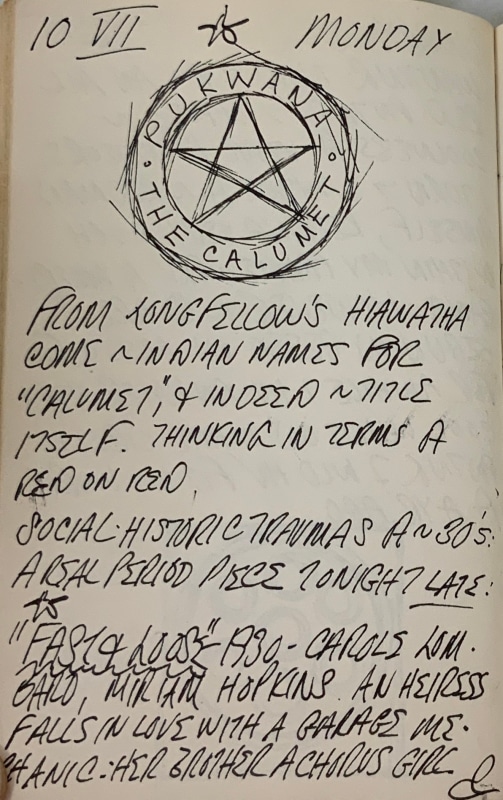 10 VII ☆ MONDAY
PUKWANA
• THE CALUMET •
FROM LONGFELLOW'S HIAWATHA
COME ~ INDIAN NAMES FOR
"CALUMET," & INDEED ~ TITLE
ITSELF. THINKING IN TERMS A
RED ON RED.
SOCIAL-HISTORIC TRAUMAS A ~ 30'S:
A REAL PERIOD PIECE TONIGHT LATE:
☆
"FAST & LOOSE" 1930 - CAROLE LOM-
BARD, MIRIAM HOPKINS. AN HEIRESS
FALLS IN LOVE WITH A GARAGE ME-
CHANIC - HER BROTHER A CHORUS GIRL.